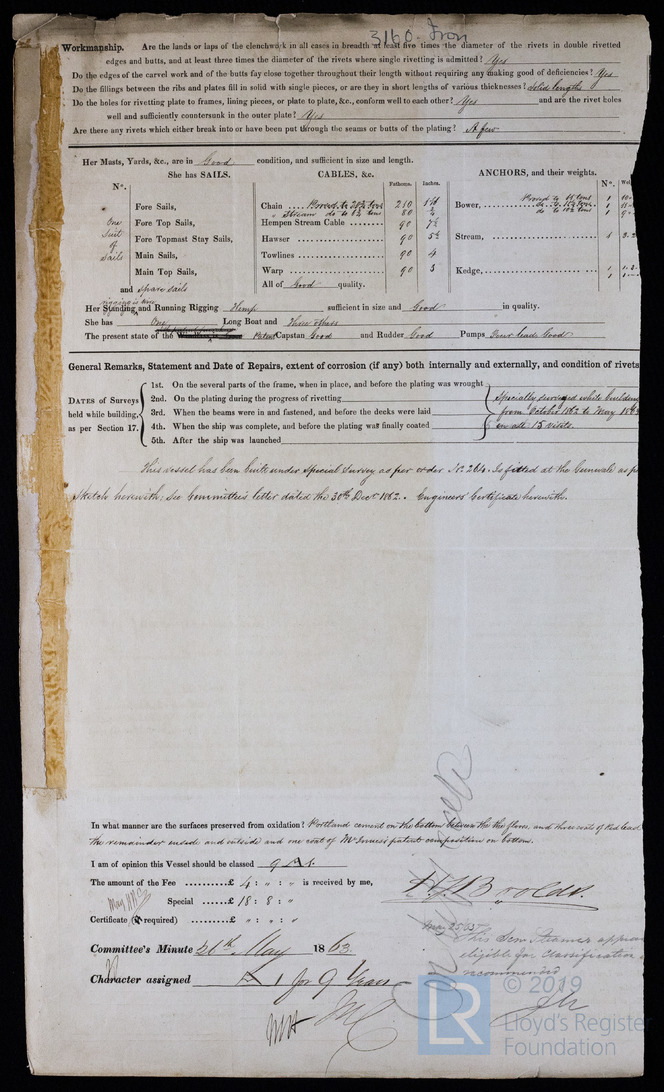 3160 Iron
Workmanship. Are the lands or laps of the clenchwork in all cases in breadth at least five times the diameter of the rivets in double rivetted
edges and butts, and at least three times the diameter of the rivets where single rivetting is admitted? Yes
Do the edges of the carvel work and of the butts fay close together throughout their length without requiring any making good of deficiencies? Yes
Do the fillings between the ribs and plates fill in solid with single pieces, or are they in short lengths of various thicknesses? Solid lengths
Do the holes for rivetting plate to frames, lining pieces, or plate to plate, &c., conform well to each other? Yes and are the rivet holes
well and sufficiently countersunk in the outer plate? Yes
Are there any rivets which either break into or have been put through the seams or butts of the plating? A few
Her Masts, Yards, &c., are in Good condition, and sufficient in size and length.
She has SAILS. CABLES, &c. ANCHORS, and their weights.
No. Fathoms. Inches. No.
Fore Sails, Chain Proved to tons 210 Bower, Proved to tons 1
One Suit of Sails
Stream do to tons 80 do to tons 1
Fore Top Sails, Hempen Stream Cable 90 7½ do to tons 1
Fore Topmast Stay Sails, Hawser 90 5½ Stream, 1
Main Sails, Towlines 90 4
Main Top Sails, Warp 90 3 Kedge, 1
and spare sails All of Good quality. 1
rigging is wire
Her Standing and Running Rigging Hemp sufficient in size and Good in quality.
She has One Long Boat and Three others
The present state of the Patent Capstan Good and Rudder Good Pumps Four lead Good
General Remarks, Statement and Date of Repairs, extent of corrosion (if any) both internally and externally, and condition of rivets
DATES of Surveys held while building, as per Section 17.
1st. On the several parts of the frame, when in place, and before the plating was wrought
2nd. On the plating during the progress of rivetting
3rd. When the beams were in and fastened, and before the decks were laid
4th. When the ship was complete, and before the plating was finally coated
5th. After the ship was launched
Specially surveyed while building
from October 1862 to May 1863
in all 15 visits.
This vessel has been built under Special Survey as per order No. 264. Is fitted at the Gunwale as p
Sketch herewith; See Committee's letter dated the 30th Decr. 1862. Engineers Certificate herewith.
In what manner are the surfaces preserved from oxidation? Portland cement on the bottom between the the floors, and three coats of Red Lead
the remainder inside and outside and one coat of McInnes's patent composition on bottom.
I am of opinion this Vessel should be classed 9 A 1.
The amount of the Fee ..........£ 4 : " : " is received by me,
Special ......£ 18 : 8 : "
Certificate (if required) .......£ " : " : "
May 25/63
This Screw Steamer appears
eligible for classification
recommended
Committee's Minute 26th May 1863.
Character assigned A 1 for 9 Years
LR
© 2019
Lloyd's Register
Foundation